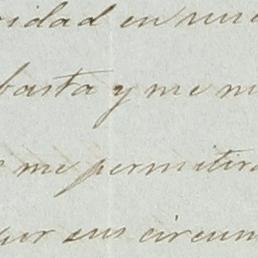 ridad en
basta y me
me permitira
por sus circun